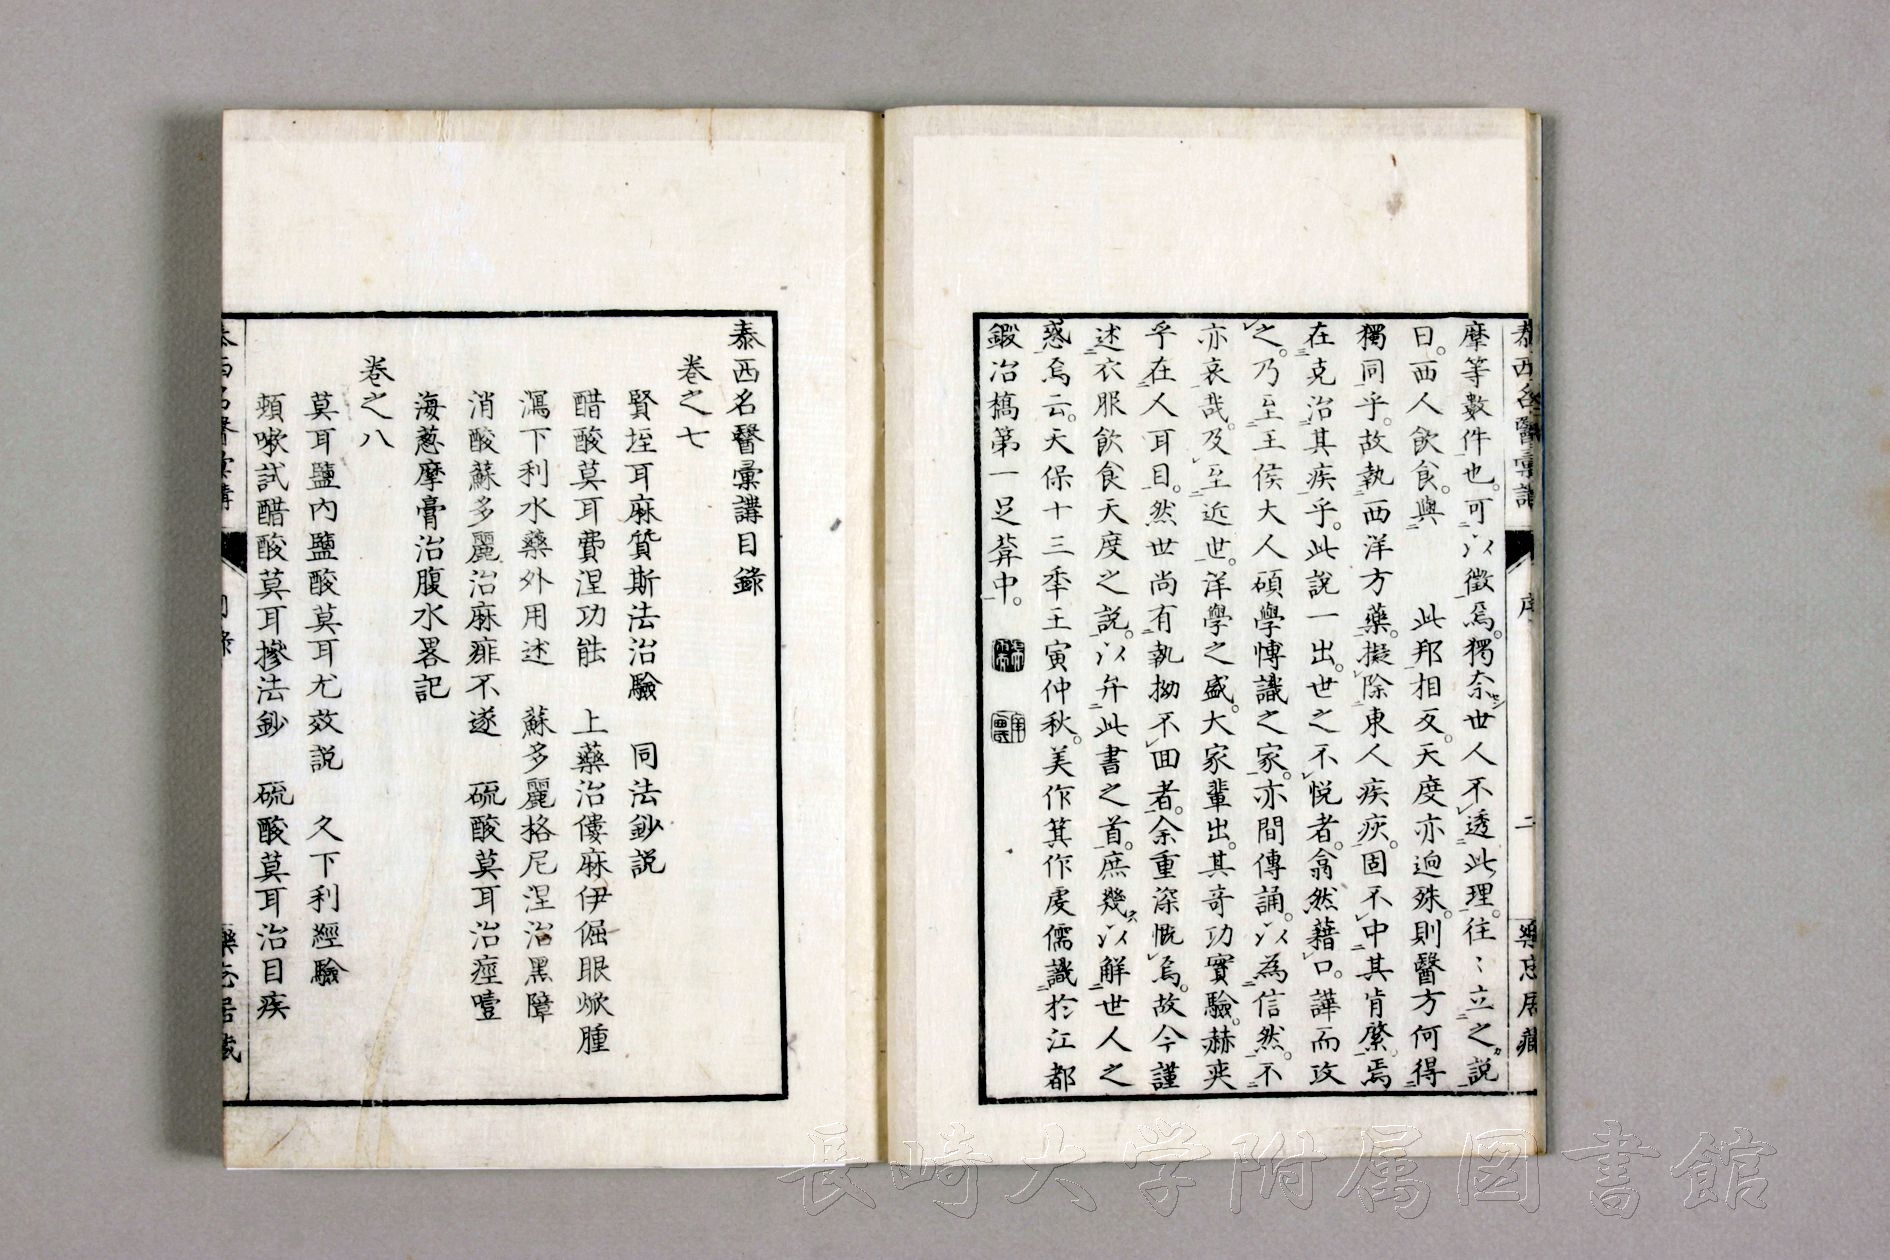 泰西名醫彙講 序 二 藥忘居藏
摩等數件也。可以徵焉。獨奈世人不透此理。往〻立之説
曰。西人飲食。與 此邦相反。天度亦逈殊。則醫方何得
獨同乎。故執西洋方藥。擬除東人疾疢。固不中其肯綮。焉
在克治其疾乎。此説一出。世之不悦者。翕然藉口。譁而攻
之。乃至王侯大人碩學博識之家。亦間傳誦。以為信然。不
亦哀哉。及至近世。洋學之盛。大家輩出。其奇功實驗。赫奕
乎在人耳目。然世尚有執拗不回者。余重深慨焉。故今謹
述衣服飲食天度之説。以弁此書之首。庶幾以解世人之
惑焉云。天保十三年壬寅仲秋。美作箕作虔儒識於江都
鍛冶橋第一足葊中。
泰西名醫彙講目錄
卷之七
賢垤耳麻質斯法治驗 同法鈔説
醋酸莫耳費涅功能 上藥治僂麻伊倔眼焮腫
瀉下利水藥外用述 蘇多麗格尼涅治黒障
消酸蘇多麗治麻痱不遂 硫酸莫耳治痙噎
海葱摩膏治腹水畧記
卷之八
莫耳鹽内鹽酸莫耳尤效説 久下利經驗
頬嗽試醋酸莫耳摻法鈔 硫酸莫耳治目疾
泰西名醫彙講 目錄 藥忘居藏
長崎大学附属図書館